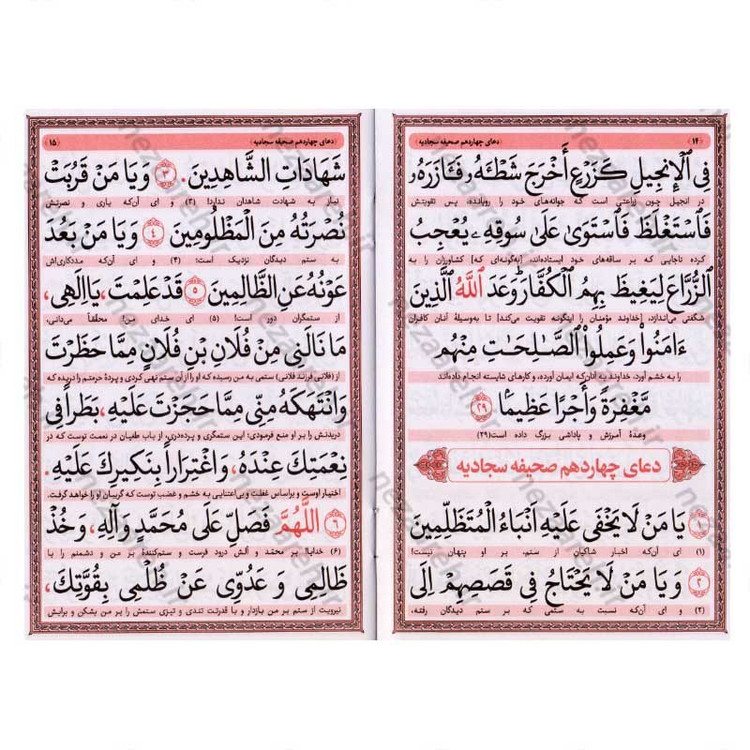 ﴿۱۴﴾
﴿دعای چهاردهم صحیفه سجادیه﴾
فِی الْإِنْجِیلِ كَزَرْعٍ أَخْرَجَ شَطْـَٔهُۥ فَـَٔازَرَهُۥ
در انجیل چون زراعتی است که جوانه‌های خود را رویانده، پس تقویتش
فَاسْتَغْلَظَ فَاسْتَوَىٰ عَلَىٰ سُوقِهِۦ يُعْجِبُ
کرده تاجایی که بر ساقه‌های خود ایستاده‌اند، [به‌گونه‌ای که] کشاورزان را به
الزُّرَّاعَ لِيَغِيظَ بِهِمُ الْكُفَّارَ ۗ وَعَدَ اللَّهُ الَّذِينَ
شگفتی می‌اندازد، [خداوند مؤمنان را اینگونه تقویت می‌کند] تا به‌وسیلهٔ آنان کافران
ءَامَنُوا۟ وَعَمِلُوا۟ الصَّـٰلِحَـٰتِ مِنْهُم
را به خشم آورد. خداوند به آنان‌که ایمان آورده، و کارهای شایسته انجام داده‌اند
مَّغْفِرَةً وَأَجْرًا عَظِيمًۢا ﴿۲۹﴾
وعدهٔ آمرزش و پاداشی بزرگ داده است(۲۹)
دعای چهاردهم صحیفه سجادیه
﴿۱﴾ يَا مَنْ لَا يَخْفَى عَلَيْهِ أَنْبَاءُ الْمُتَظَلِّمِينَ
(۱) ای آن‌که اخبار شاکیان از ستم، بر او پنهان نیست!
﴿۲﴾ وَ يَا مَنْ لَا يَحْتَاجُ فِي قَصَصِهِمْ إِلَى
(۲) و ای آن‌که نسبت به ستمی که بر ستم دیدگان رفته،
﴿دعای چهاردهم صحیفه سجادیه﴾
﴿۱۵﴾
شَهَادَاتِ الشَّاهِدِينَ. ﴿۳﴾ وَ يَا مَنْ قَرُبَتْ
نیاز به شهادت شاهدان ندارد! (۳) و ای آن‌که یاری و نصرتش
نُصْرَتُهُ مِنَ الْمَظْلُومِينَ ﴿۴﴾ وَ يَا مَنْ بَعُدَ
به ستم دیدگان نزدیک است! (۴) و ای آن‌که مددکاری‌اش
عَوْنُهُ عَنِ الظَّالِمِينَ ﴿۵﴾ قَدْ عَلِمْتَ، يَا إِلَهِي،
از ستمگران دور است! (۵) ای خدای من! محققاً می‌دانی،
مَا نَالَنِي مِنْ فُلَانِ بْنِ فُلَانٍ مِمَّا حَظَرْتَ
از (فلانی فرزند فلانی) ستمی به من رسیده که او را از آن ستم نهی کردی و پردهٔ حرمتم را دریده که
وَ انْتَهَكَهُ مِنِّي مِمَّا حَجَزْتَ عَلَيْهِ، بَطَراً فِي
دریدنش را بر او منع فرمودی؛ این ستمگری و پرده‌دری، از باب طغیان در نعمت توست که در
نِعْمَتِكَ عِنْدَهُ، وَ اغْتِرَاراً بِنَكِيرِكَ عَلَيْهِ.
اختیار اوست و براساس غفلت و بی‌اعتنایی به خشم و غضب توست که گریبان او را خواهد گرفت.
﴿۶﴾ اللَّهُمَّ فَصَلِّ عَلَى مُحَمَّدٍ وَ آلِهِ، وَ خُذْ
(۶) خدایا! بر محمّد و آلش درود فرست و ستم‌کنندهٔ بر من و دشمنم را با
ظَالِمِي وَ عَدُوِّي عَنْ ظُلْمِي بِقُوَّتِكَ،
نیرویت از ستم بر من بازدار و با قدرتت تندی و تیزی ستمش را بر من بشکن و برایش
nezafehr.ir